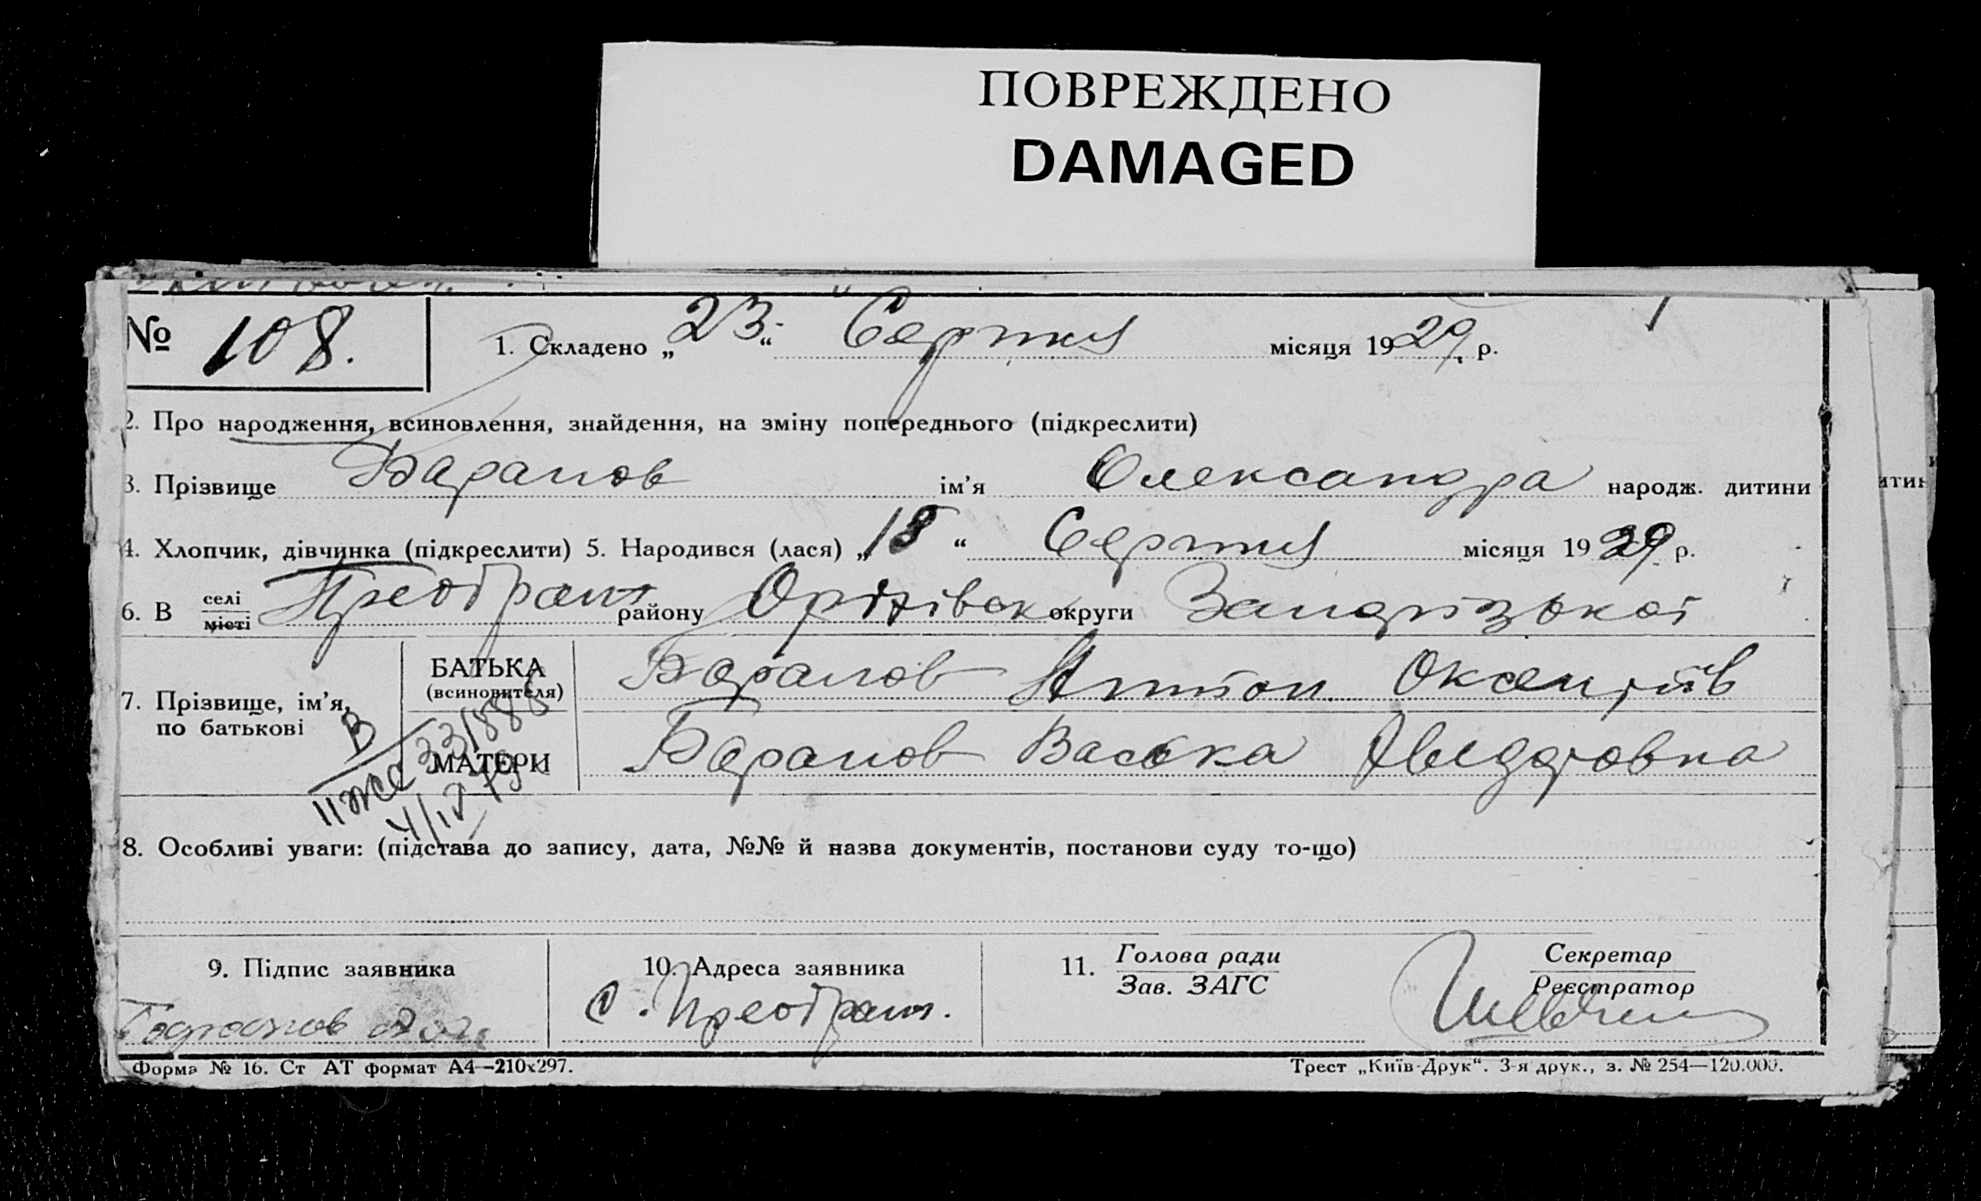 ПОВРЕЖДЕНО
DAMAGED
№ 108. 1. Складено „23“ Серпня місяця 1929 р.
2. Про народження, всиновлення, знайдення, на зміну попереднього (підкреслити)
3. Прізвище Баранов ім’я Олександра народж. дитини
4. Хлопчик, дівчинка (підкреслити) 5. Народився (лася) „18“ Серпня місяця 1929 р.
6. В селі місті Преображ району Оріхівськ округи Запорізької
7. Прізвище, ім’я, по батькові
БАТЬКА (всиновителя) Баранов Антон
МАТЕРИ Баранов Васька
8. Особливі уваги: (підстава до запису, дата, №№ й назва документів, постанови суду то-що)
9. Підпис заявника
10. Адреса заявника
11. Голова ради
Зав. ЗАГС
Секретар
Реєстратор
Баранов
с. Преображ.
Форма № 16. Ст АТ формат А4—210х297.
Трест „Київ-Друк“. 3-я друк., з. № 254—120.000.